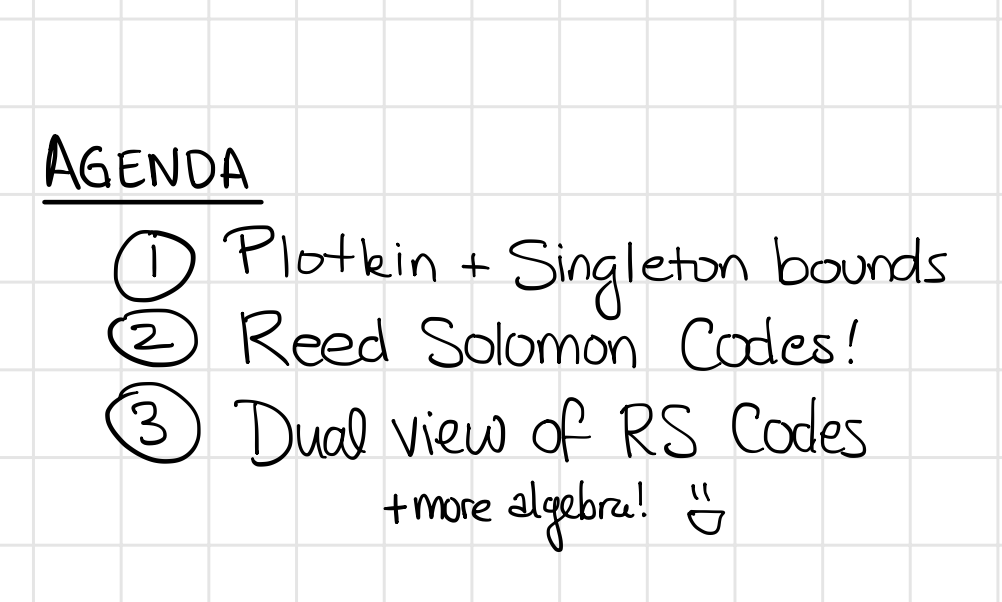 AGENDA
1 Plotkin + Singleton bounds
2 Reed Solomon Codes!
3 Dual view of RS Codes
+more algebra!